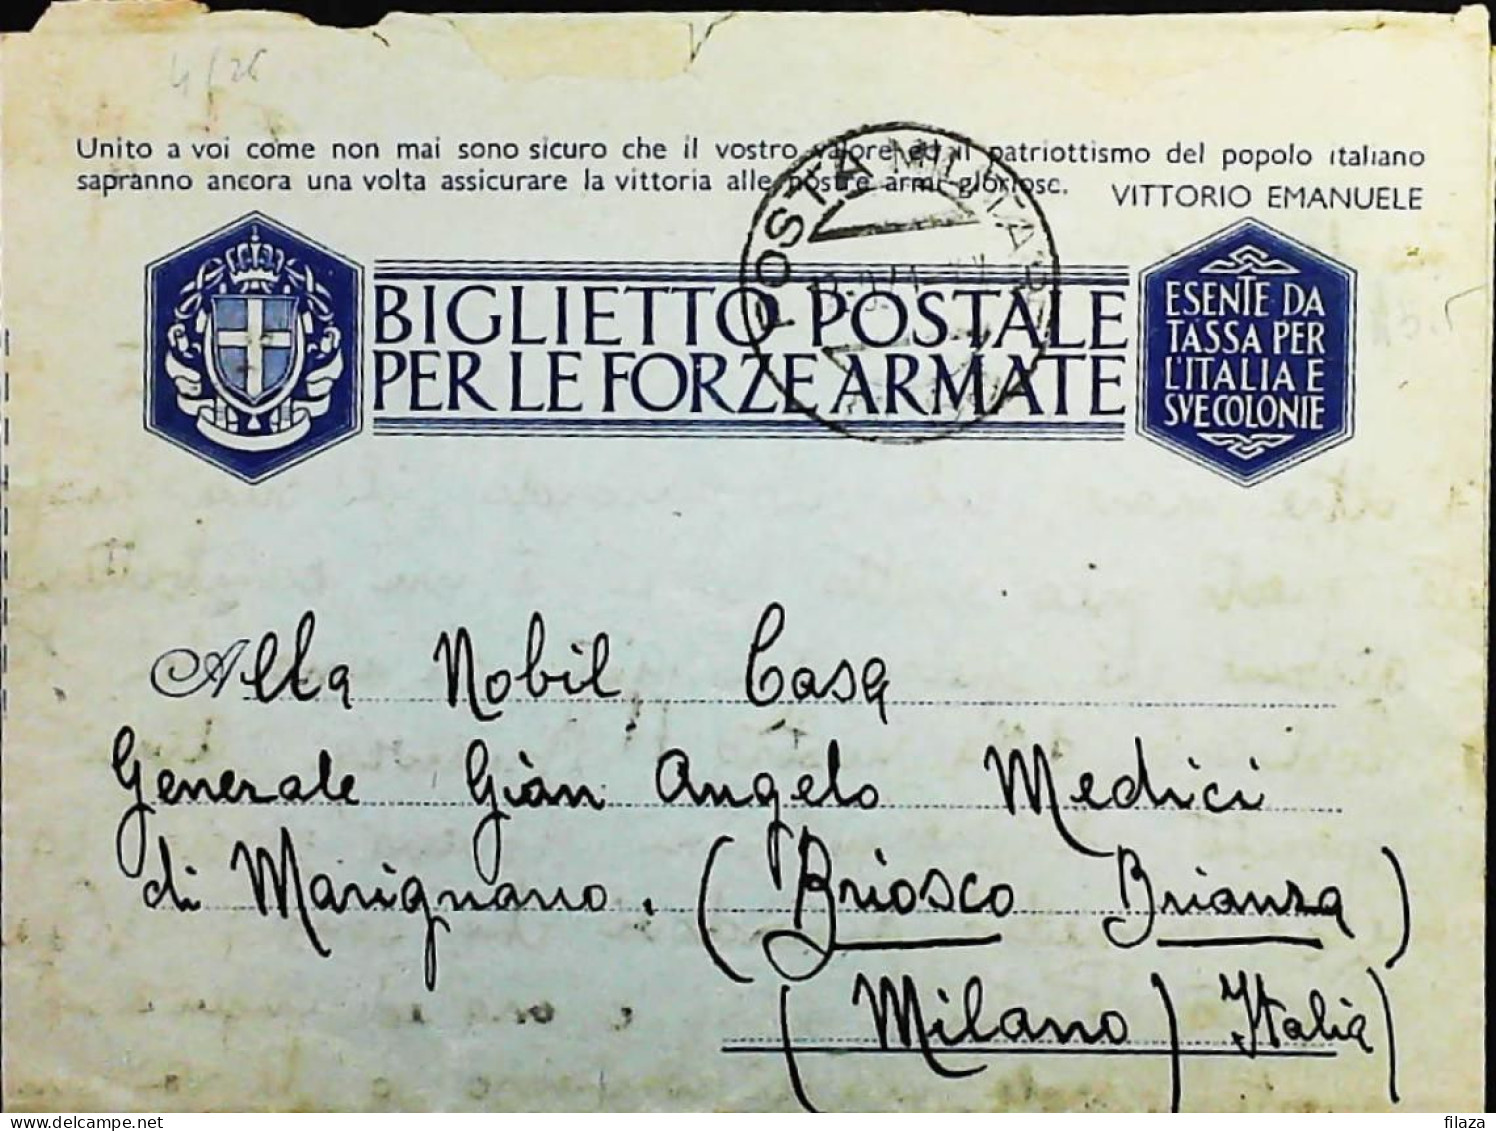 4/26
Unito a voi come non mai sono sicuro che il vostro valore ed il patriottismo del popolo italiano
sapranno ancora una volta assicurare la vittoria alle nostre armi gloriose. VITTORIO EMANUELE
POSTA MILITARE
BIGLIETTO POSTALE
PER LE FORZE ARMATE
ESENTE DA
TASSA PER
L'ITALIA E
SVE COLONIE
Alla Nobil Casa
Generale Gian Angelo Medici
di Marignano. (Briosco Brianza)
(Milano) Italia)
filaza